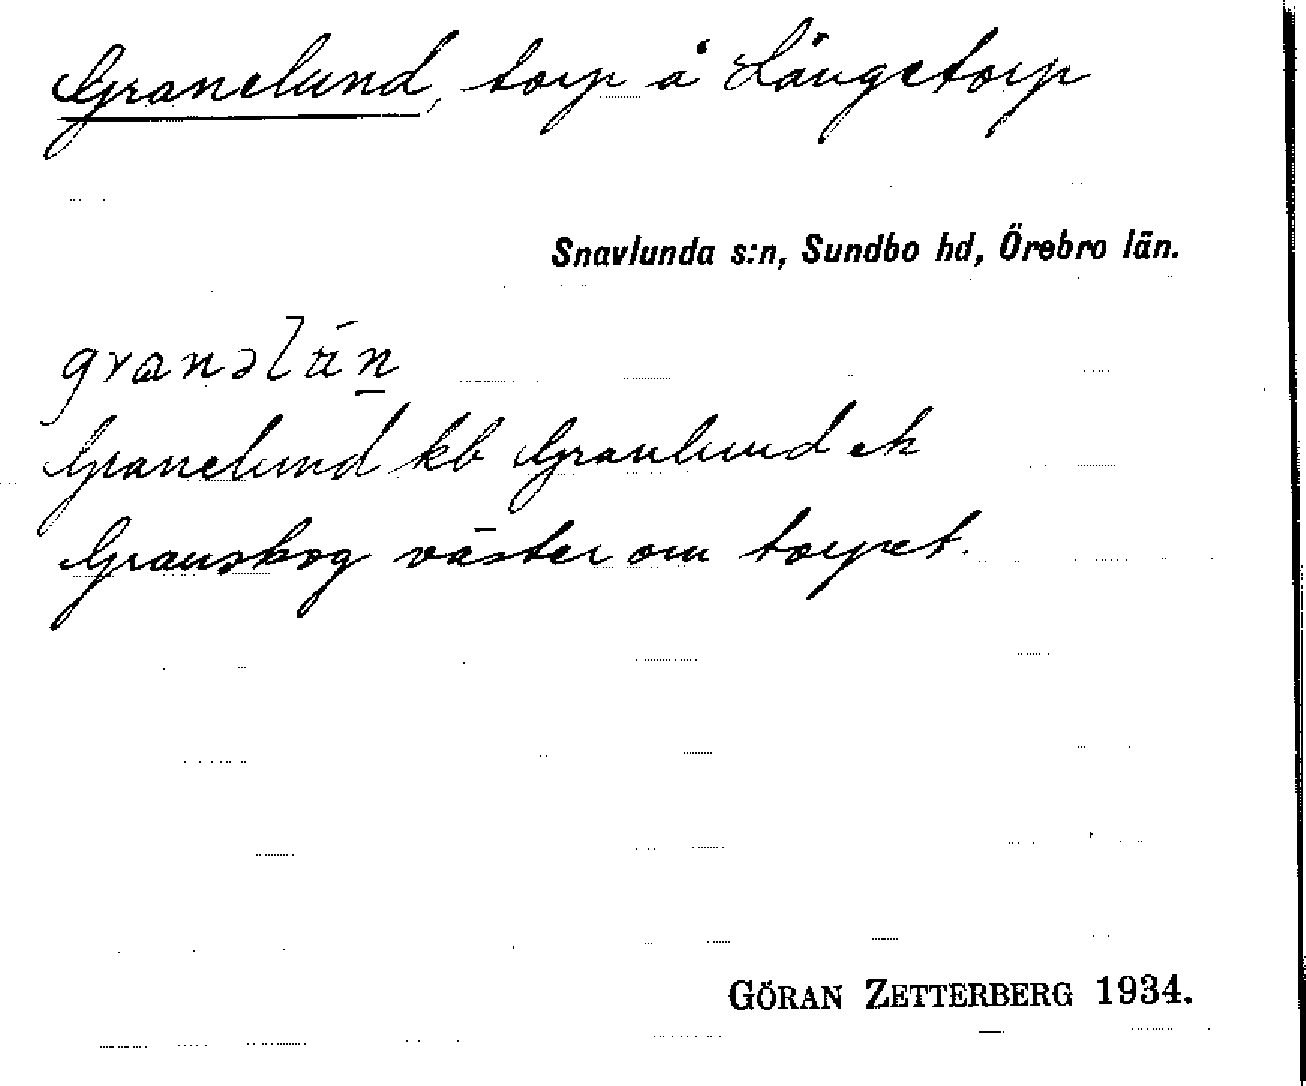 Granelund, torp å Långetorp
Snavlunda s:n, Sundbo hd, Örebro län.
Granelund kb Granlund ek
Granskog väster om torpet.
GÖRAN ZETTERBERG 1934.